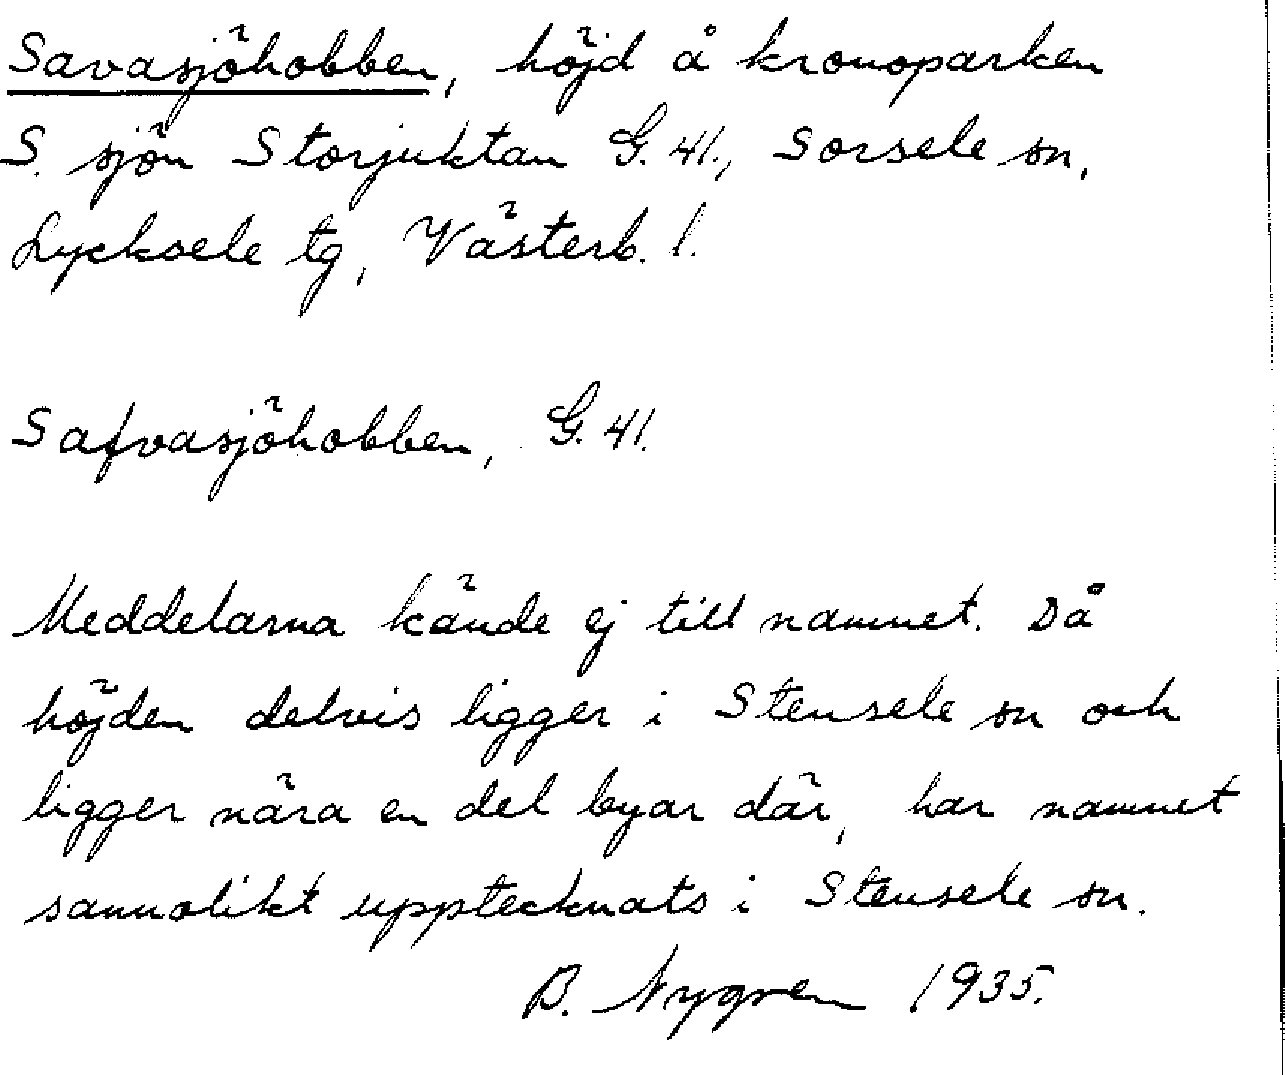 Savasjöhobben, höjd å kronoparken
S. sjön Storjuktan G. 41., Sorsele sn,
Lycksele tg, Västerb. l.
Safvasjöhobben, G. 41.
Meddelarna kände ej till namnet. Då
höjden delvis ligger i Stensele sn och
ligger nära en del byar där, har namnet
sannolikt upptecknats i Stensele sn.
B. Nygren 1935.